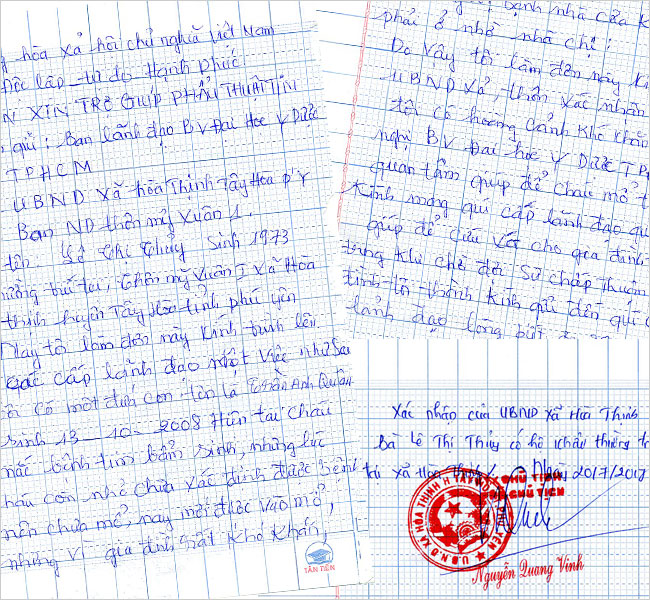 hòa xả hôi chủ nghĩa việt Nam
Độc lập - tự do Hạnh phúc!
N XIN TRỢ GIÚP PHẨU THUẬT TIN
gửi: Ban lãnh đạo BV Đại Học Y Dược
TPHCM
UBND xã hòa Thịnh Tây Hòa p'y
Ban ND thôn mỹ xuân 1.
tên Lê Thị Thủy Sinh 1973
thường trú tại, thôn mỹ Xuân 1 Xã Hòa
thịnh huyện Tây Hòa tỉnh phú yên
Nay tô làm đơn này Kính trình lên
Các cấp lảnh đạo một việc như Sau
Có một đứa con tên là Trần Anh Quân
Sinh 13-10-2008 Hiên tại Cháu
mắc bệnh tim bẩm sinh, những lúc
cáu còn nhỏ chưa xác định được bệnh
nên chưa mổ, nay mới được vào mổ,
nhưng vì gia đình rất Khó Khăn,
TÂN TIẾN
bệnh nhà cửa K
phải ở nhờ nhà chị:
Do vậy tôi làm đơn này Kí
UBND xả, thôn xác nhân
tôi có hoàng cảnh Khó Khăn
nghị BV Đại học Y Dược TP
quan tâm giúp để cháu mổ t
Kính mong quí cấp lảnh đạo qu
giúp để cứu vớt cho gia đình
trong Khi chờ đợi Sự chấp thuân
đình tôi thành Kính gửi đến quí
lảnh đạo lòng biết
Xác nhập của UBND xã Hòa Thịnh
Bà Lê Thị Thủy có hộ khẩu thường tr
tú xã Hòa Thịnh Ngày 20/7/2017
CHỦ TỊCH
PHÓ CHỦ TỊCH
U.B.N.D XÃ HÒA THỊNH H TÂY HÒA PHÚ YÊN
Nguyễn Quang Vinh